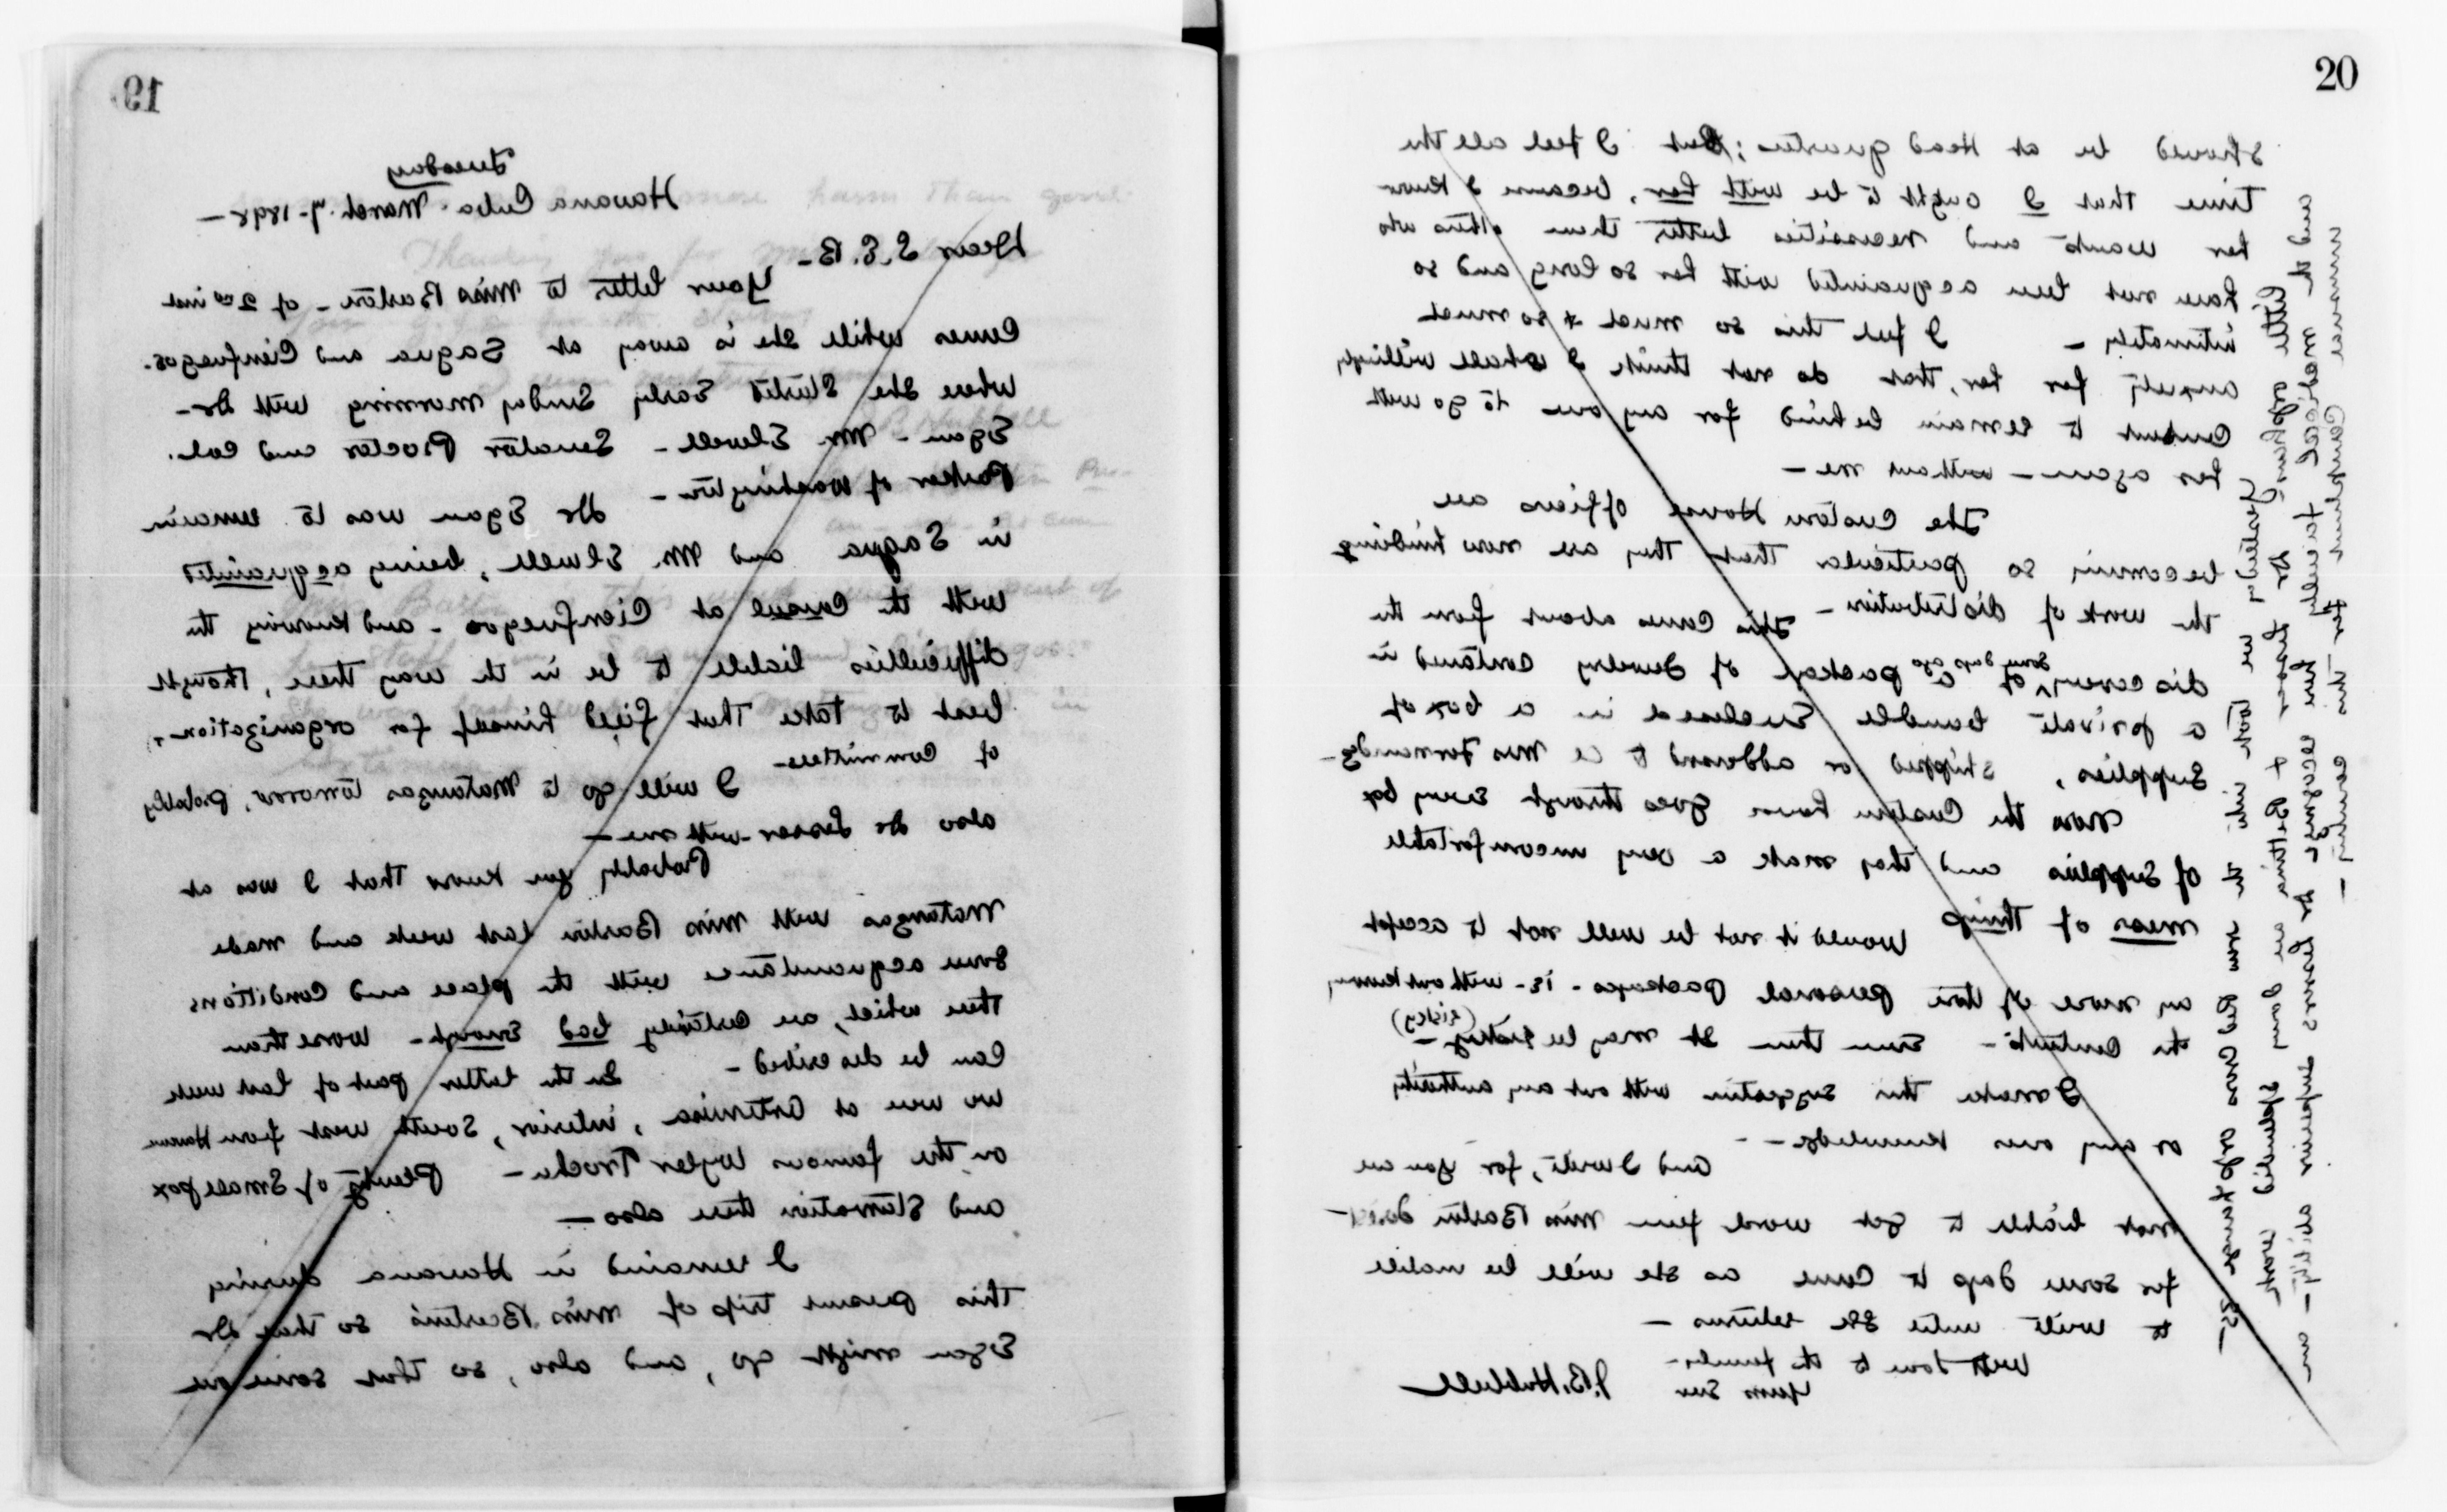 19
Tuesday
Havana Cuba. March. 7. 1898 —
Dear S.E.B. -
Your letter to Miss Barton - of 2nd inst
Comes while she is away at Sagua and Cienfuegos.
where she started Early Sunday morning with Dr -
Egan - Mr. Elwell - Senator Proctor and Col.
Parker of Washington - Dr Egan was to remain
in Sagua and Mr. Elwell, being acquainted
with the Consul at Cienfuegos - and knowing the
difficulties liable to be in the way there, thought
best to take that field himself for organization,
of Committees -
I will go to Matanzas tomorrow, probably
also Dr Lesser - with me —
Probably you know that I was at
Matanzas with Miss Barton last week and made
some acquaintance with the place and Conditions
there which, are certainly bad enough - worse than
Can be described - In the latter part of last week
we were at Artemisa, interior, South west from Havana
on the famous Wyler Trocha - Plenty of Small pox
and Starvation there also —
I remained in Havana during
this present trip of Miss Barton's so that Dr
Egan might go, and also, so that some one
20
should be at Head quarters; But I feel all the
time that I ought to be with her, because I know
her wants and necessities better than others who
have not been acquainted with her so long and so
intimately - I feel this so much & so much
anxiety for her, that do not think I shall willingly
Consent to remain behind for any one to go with
her again — without me —
The Custom House officers are
becoming so particular that they are now hindering
the work of distribution - This comes about from the
discovery of some days ago a package of Jewelry contained in
a private bundle Enclosed in a box of
Supplies, shipped or addressed to a Mrs Fernandez -
Now the Custom house goes through every box
of Supplies and they make a very uncomfortable
mess of things Would it not be well not to accept
any more of those personal packages - is - without knowing
the Contents - Even then it may be risky - (risky)
I make this suggestion with out any authority
or any ones knowledge - -
And I write, for you are
not liable to get word from Miss Barton direct -
for some days to Come as she will be unable
to write until she returns —
With Love to the family -
Yours Ever J.B. Hubbell
Yesterday we took into the new Red Cross orphanage 25 -
little orphans - Dr Lesser & Bettina are doing splendid work
and the medical faculty here recognize Dr Lessers superior ability - an
unusual Compliment for this country —